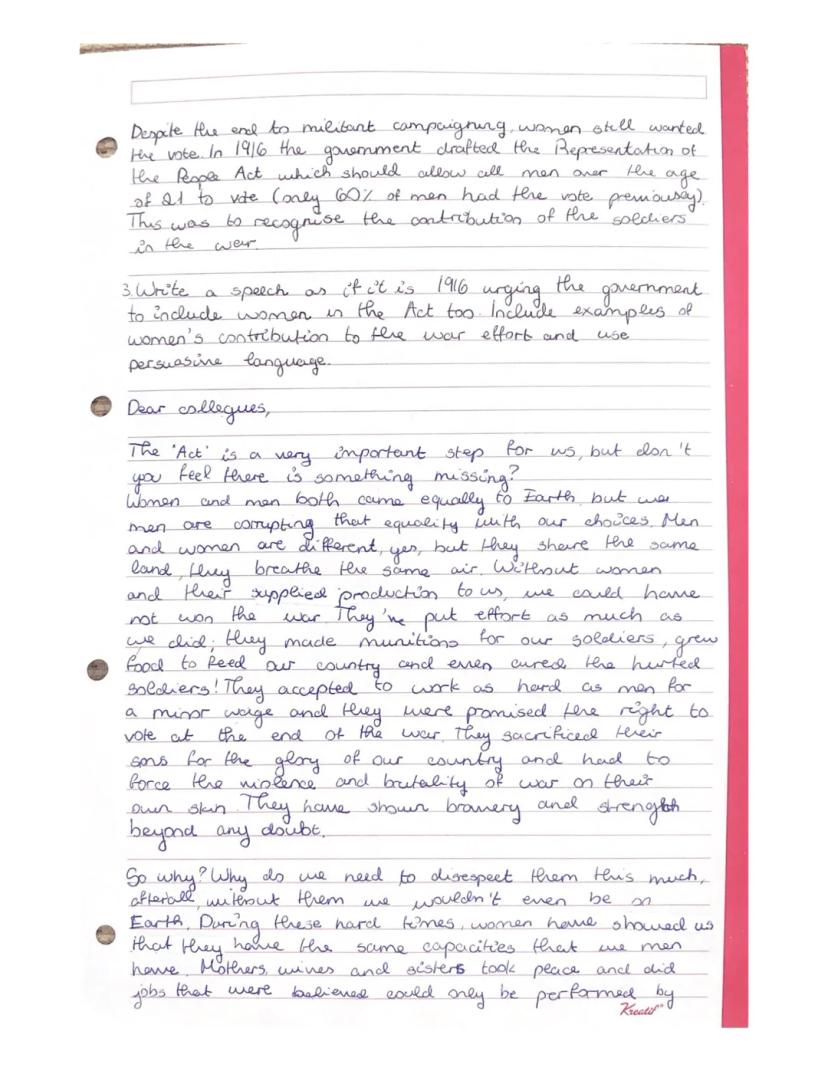 Despite the end to militant campaigning, women still wanted
the vote. In 1916 the government drafted the Representation of
the People Act which should allow all men over the age
of 21 to vote (only 60% of men had the vote previousey).
This was to recognise the contribution of the soldiers
in the war.
3. Write a speech as if it is 1916 urging the government
to include women in the Act too. Include examples of
women's contribution to the war effort and use
persuasive language.
Dear collegues,
The 'Act' is a very important step for us, but don't
you feel there is something missing?
Women and men both came equally to Earth, but we
men are corrupting that equality with our choices. Men
and women are different, yes, but they share the same
land, they breathe the same air. Without women
and their supplied production to us, we could have
not won the war. They've put effort as much as
we did; they made munitions for our soldiers, grew
food to feed our country and even cured the hurted
soldiers! They accepted to work as hard as men for
a minor wage and they were promised the right to
vote at the end of the war. They sacrificed their
sons for the glory of our country and had to
force the violence and brutality of war on their
own skin. They have shown bravery and strength
beyond any doubt.
So why? Why do we need to disrespect them this much,
afterall, without them we wouldn't even be on
Earth. During these hard times, women have showed us
that they have the same capacities that we men
have. Mothers, wives and sisters took peace and did
jobs that were believed could only be performed by
Kreatif